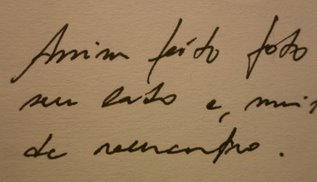 Assim feito foto
seu lado e, mais
de reencontro.